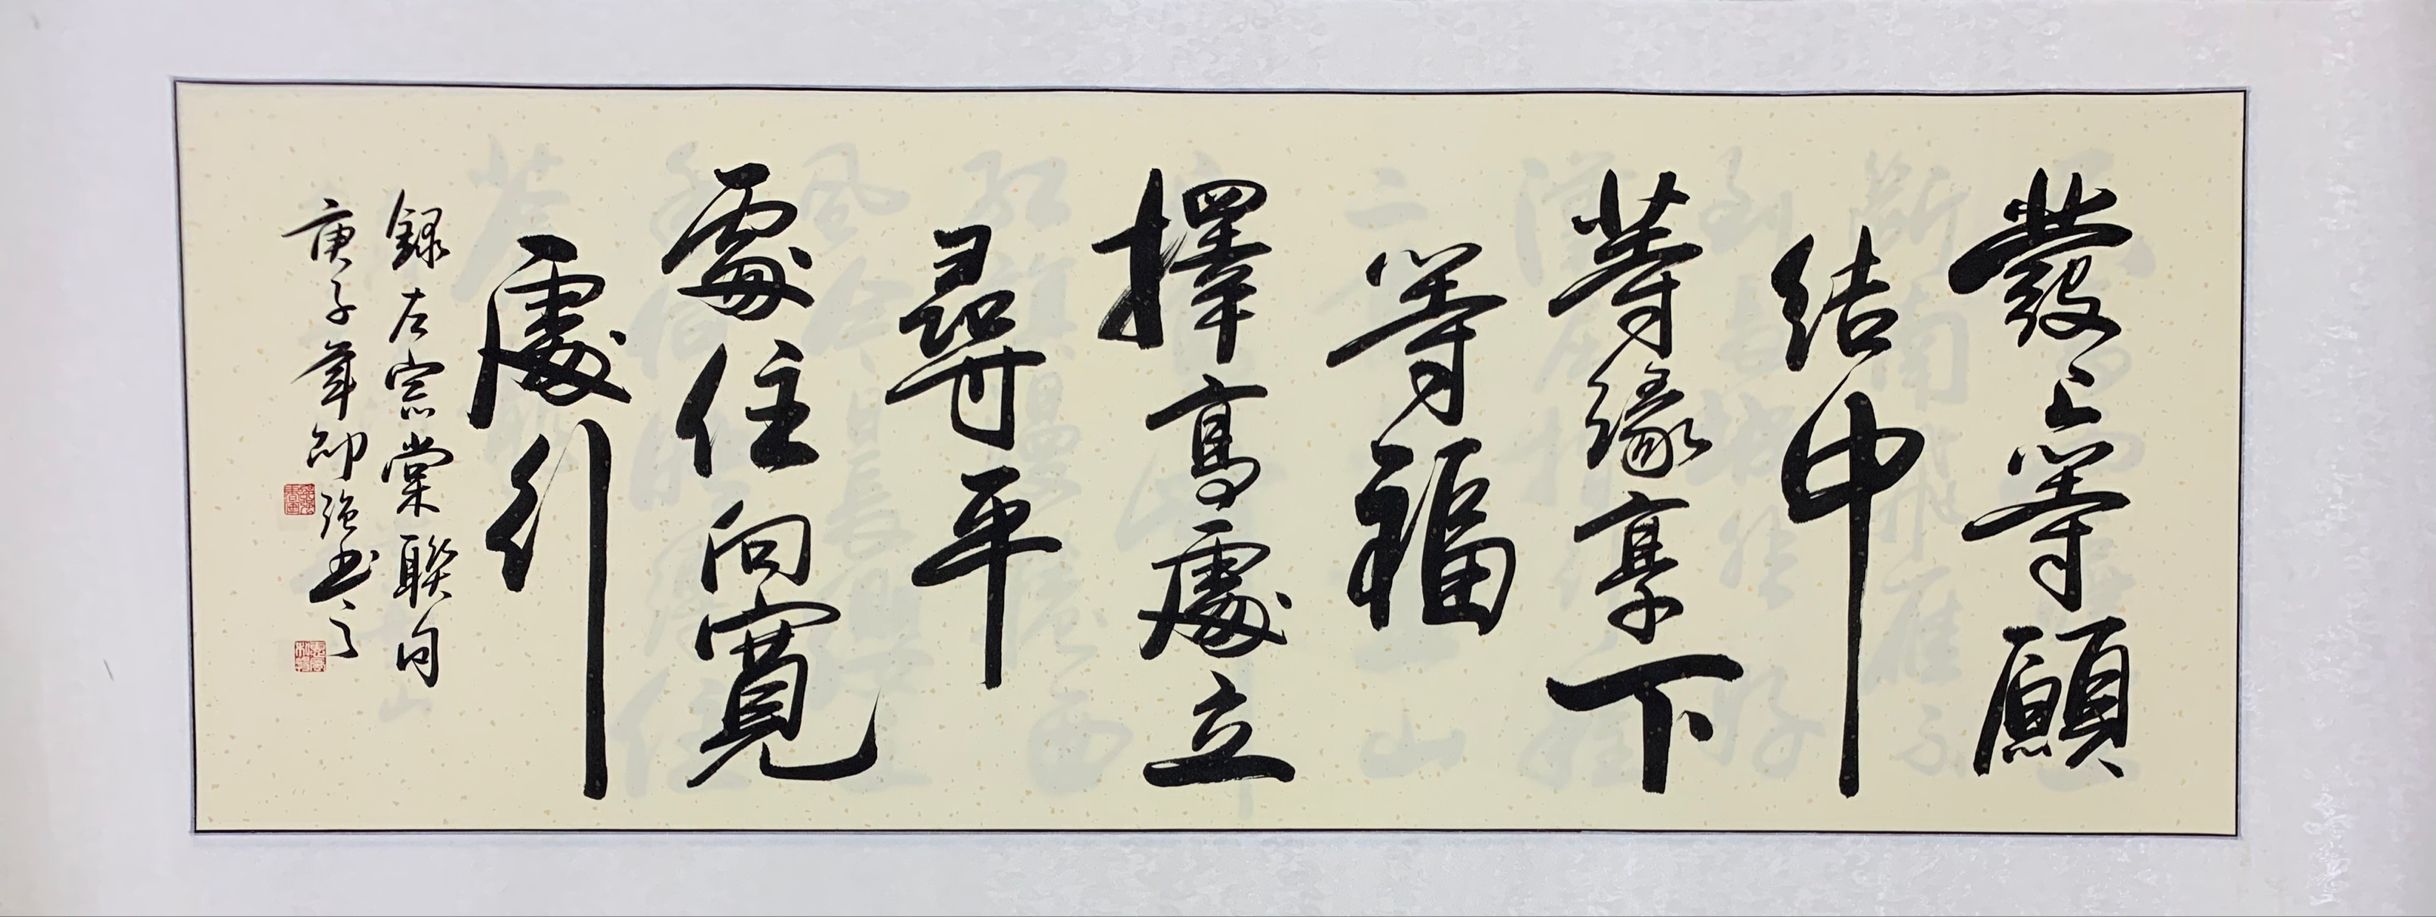 發上等願
結中
等緣享下
等福
擇高處立
尋平
處住向寬
處行
錄左宗棠聯句
庚子年帥強書之